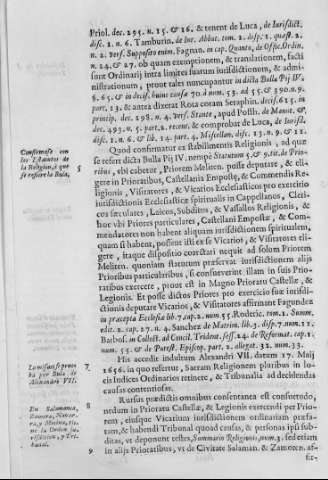 Priol. dec. 295. n. 15. & 16. & tenent de Luca, de Iurisdict.
disc. 2. n. 6. Tamburin. de Iur. Abbat. tom. 2. disp. 1. quæst. 2.
n. 2. vers. Supposito enim. Fagnan. in cap. Quanto, de Offic. Ordin.
n. 24. & 27. ob quam exemptionem, & translationem, facti
sunt Ordinarij intra limites suarum iurisdictionem, & admi-
nistrationum, prout tales nuncupantur in dicta Bulla Pij IV.
part. 23. & antea dixerat Rota coram Seraphin. decis. 615. in
princip. dec. 198. n. 4. vers. Stante, apud Posth. de Manut. &
dec. 493. n. 5. part. 2. recent. & comprobat de Luca, de Iurisd.
disc. 2. n. 6. & lib. 14. part. 4. Miscellan. disc. 13. n. 9. & 12.
Confirmase con
los Estatutos de
la Religion, à que
se refiere la Bula,
5
Quod confirmatur ex stabilimentis Religionis, ad quæ
se refert dicta Bulla Pij IV. nempè Statutum 5. & 9. tit. de Prio-
ribus, ubi cabetur, Priorem Meliten. posse deputare, & eli-
gere in Prioratibus, Castellania Emposte, & Commendis Re-
ligionis, Visitatores, & Vicarios Ecclesiasticos pro exercitio
iurisdictionis Ecclesiasticæ spiritualis in Cappellanos, Cleri-
cos sæculares, Laicos, Subditos, & Vassallos Religionis, &
hoc ubi Priores particulares, Castellani Emposte, & Com-
mendatores non habent aliquam iurisdictionem spiritualem,
quam si habent, possunt isti ex se Vicarios, & Visitatores eli-
gere, itaque dispositio coarctari nequit ad solum Priorem
Meliten. quoniam statutum præservat iurisdictionem alijs
Prioribus particularibus, si consueverint illam in suis Prio-
ratibus exercere, prout est in Magno Prioratu Castellæ, &
Legionis. Et posse dictos Priores pro exercitio suæ iurisdi-
ctionis deputare Vicarios, & Visitatores affirmant Fagundez
in præcepta Ecclesiæ lib. 7. cap. 2. num. 55. Roderic. tom. 1. Summ.
edit. 2. cap. 27. n. 4. Sanchez de Matrim. lib. 3. disp. 7. num. 11.
Barbos. in Collect. ad Concil. Trident. sess. 24. de Reformat. cap. 1.
num. 55. & de Potest. Episcop. part. 2. allegat. 32. num. 33.
Lo mismo se prue-
ba por Bula de
Alexandro VII.
7
His accedit indultum Alexandri VII. datum 17. Maij
1656. in quo refertur, Sacram Religionem pluribus in lo-
cis Iudices Ordinarios retinere, & Tribunalia ad decidendas
causas contentiosas.
En Salamanca,
Zamora, Navar-
ra, y Medina, tie-
ne la Orden ju-
risdicion, y Tri-
bunal.
8
Rursus prædictis omnibus consentanea est consuetudo,
nedum in Prioratu Castellæ, & Legionis exercendi per Prio-
rem, eiusque Vicarium iurisdictionem ordinariam præfa-
tam, & habendi Tribunal quoad causas, & personas ipsi subdi-
ditas, ut deponunt testes, Summario Religionis, num. 3. sed etiam
9
in alijs Prioratibus, vt de Civitate Salaman. & Zamoren. af-
fir-